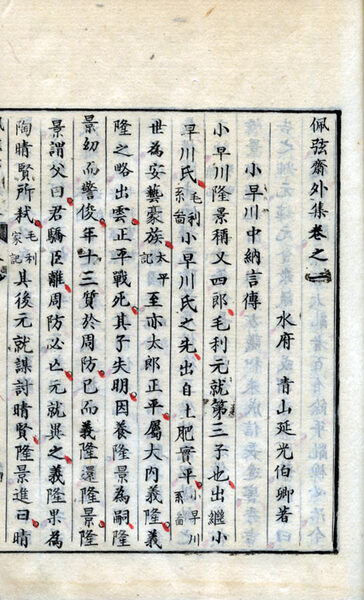 佩弦齋外集卷之一
水府 青山延光伯卿著
小早川中納言傳
小早川隆景稱又四郎毛利元就第三子也出繼小
早川氏毛利系畣小早川氏之先出自土肥實平小早川系畣
世為安藝豪族太平記至亦太郎正平屬大内義隆義
隆之略出雲正平戰死其子失明因養隆景為嗣隆
景幼而警俊年十三質於周防已而義隆還隆景隆
景謂父曰君驕臣離周防必亡元就異之義隆果為
陶晴賢所弑毛利家記其後元就謀討晴賢隆景進曰晴